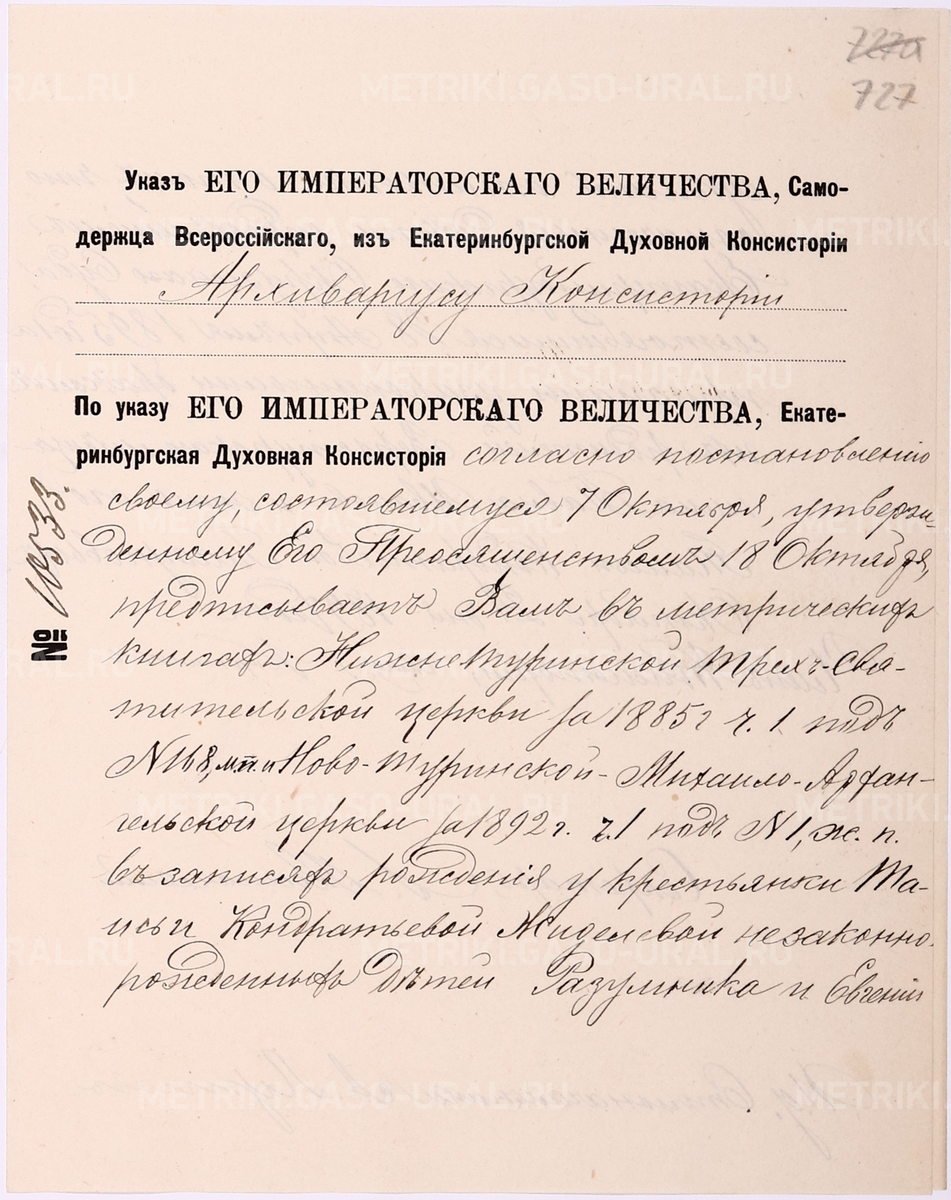 727а
727
Указъ ЕГО ИМПЕРАТОРСКАГО ВЕЛИЧЕСТВА, Само-
держца Всероссійскаго, изъ Екатеринбургской Духовной Консисторіи
Архиваріусу Консисторіи
По указу ЕГО ИМПЕРАТОРСКАГО ВЕЛИЧЕСТВА, Екате-
ринбургская Духовная Консисторія согласно постановленію
своему, состоявшемуся 7 Октября, утверж-
денному Его Преосвященствомъ 18 Октября,
предписываетъ Вамъ въ метрическихъ
книгахъ: Нижнетуринской Трехъ-Свя-
тительской церкви за 1885 г ч. 1 подъ
N 168, м.п. и Ново-Туринской-Михаило-Архан-
гельской церкви за 1892 г. ч.1 подъ N 1, ж. п.
въ записяхъ рожденія у крестьянки Та-
исьи Кондратьевой Жиделевой незаконно-
рожденныхъ дѣтей Разумника и Евгеніи
№ 10533.
METRIKI.GASO-URAL.RU